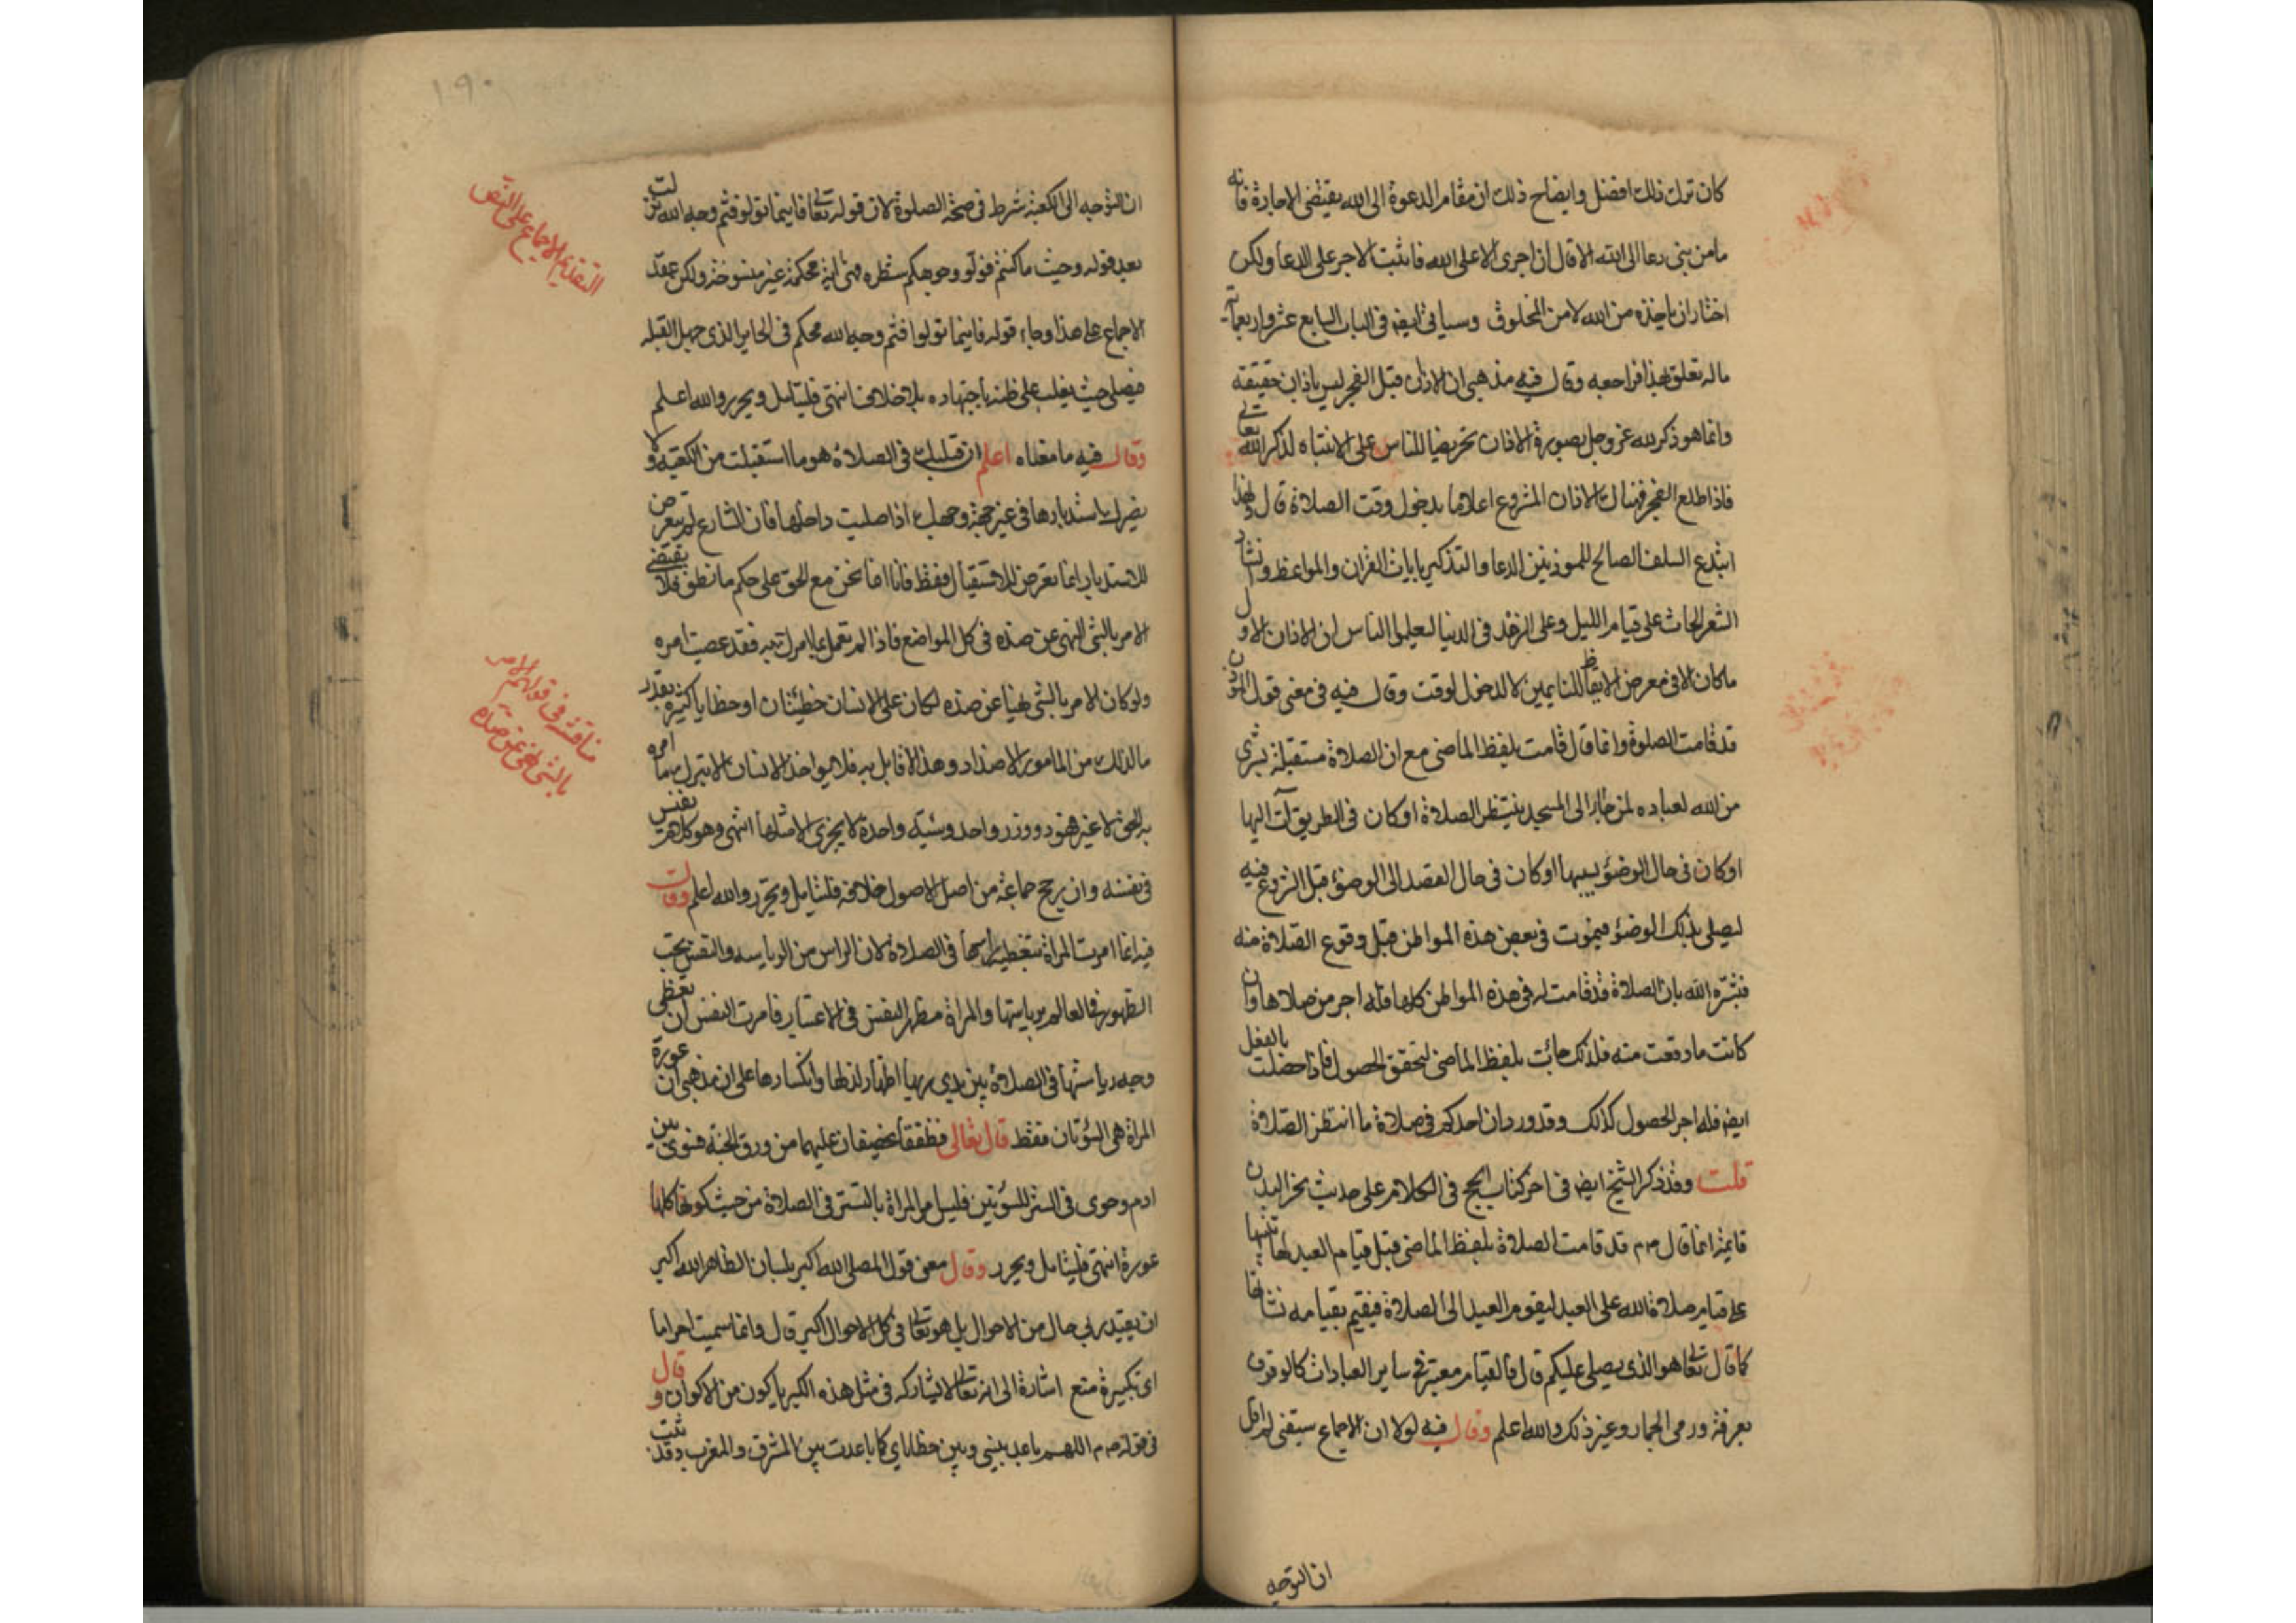 كان ترك ذلك افضل وايضاح ذلك ان مقام الدعوة الى الله يقتضى الاجارة فانه
مامن نبى دعا الى الله الا قال ان اجرى الا على الله فاثبت الاجر على الدعا ولكن
اختار ان ياخذه من الله لا من المخلوق وسياتى ايضه فى الباب السابع عشر واربعماية
ماله تعلق بهذا فراجعه وقال فيه مذهبى ان الاذان قبل الفجر ليس باذان حقيقته
وانما هو ذكر لله عز وجل بصورة الاذان تحريضا للناس على الانتباه لذكر الله تعالى
فاذا طلع الفجر فهناك الاذان المشروع اعلاما بدخول وقت الصلاة قال ولهذا
ابتدع السلف الصالح للموذنين الدعا والتذكير بايات القران والمواعظ وانشاد
الشعر الحاث على قيام الليل وعلى الزهد فى الدنيا ليعلموا الناس ان الاذان الاول
ماكان الا فى معرض الايقاظ للنايمين لا لدخول الوقت وقال فيه فى معنى قول الموذن
قد قامت الصلوة وانما قال قامت بلفظ الماضى مع ان الصلاة مستقبلة بشرى
من الله لعباده لمن جا الى المسجد ينتظر الصلاة او كان فى الطريق آت اليها
او كان فى حال الوضؤ بسببها او كان فى حال القصد الى الوضؤ قبل الشروع فيه
ليصلى بذلك الوضؤ فيموت فى بعض هذه المواطن قبل وقوع الصلاة منه
فبشره الله بان الصلاة قد قامت له فى هذه المواطن كلها فله اجر من صلاها وان
كانت ماوقعت منه فلذلك جائت بلفظ الماضى لتحقق الحصول فاذا حصلت بالفعل
ايضه فله اجر الحصول كذلك وقد ورد ان احدكم فى صلاة ما انتظر الصلاة
قلت وقد ذكر الشيخ ايضه فى اخر كتاب الحج فى الكلام على حديث نحر البدن
قايمة انما قال صم قد قامت الصلاة بلفظ الماضى قبل قيام العبد لها تنبيها
على قيام صلاة الله على العبد ليقوم العبد الى الصلاة فيقيم بقيامه نشاتها
كما قال تعالى هو الذى يصلى عليكم قال فالقيام معتبر فى ساير العبادات كالوقوف
بعرفة ورمى الجمار وغير ذلك والله اعلم وقال فيه لولا ان الاجماع سبقنى لم اقل
ان التوجه
١٩٠
ان التوجه الى الكعبة شرط فى صحة الصلوة لان قوله تعالى فاينما تولوا فثم وجه الله نزلت
بعد قوله وحيث ماكنتم فولو وجوهكم شطره فهى اية محكمة غير منسوخة ولكن عقد
الاجماع على هذا وجاء قوله فاينما تولوا فثم وجه الله محكم فى الحاير الذى جهل القبله
فيصلى حيث يغلب على ظنه باجتهاده بلا خلاف انتهى فليتامل ويحرر والله اعلم
وقال فيه ما معناه اعلم ان قبلتك فى الصلاة هو ما استقبلت من الكعبة ولا
يضرك استدبارها فى غير جهة وجهك اذا صليت داخلها فان الشارع لم يتعرض
للاستدبار انما تعرض للاستقبال فقط فانا انما نحن مع الحق على حكم ما نطق فلا يقتضى
الامر بالشى النهى عن ضده فى كل المواضع فاذا لم تعمل بما امرك به فقد عصيت امره
ولو كان الامر بالشى نهيا عن ضده لكان على الانسان خطيئتان او خطايا كثيرة بقدر
مالذلك من المامور الاضداد وهذا لا قايل به فلا يواخذ الانسان الا بترك ما امره
به الحق لا غير فهو ذو وزر واحد وسيئه واحدة لا يجزى الا مثلها انتهى وهو كلام نفيس
فى نفسه وان رجح جماعة من اهل الاصول خلافه فليتامل ويحرر والله اعلم وقال
فيه انما امرت المراة بتغطية راسها فى الصلاة لان الراس من الرياسه والنفس تحب
الظهور فى العالم برياستها والمراة مظهر النفس فى الاعتبار فامرت النفس ان تغطى
وجه رياستها فى الصلاة بين يدى ربها اظهار لذلها وانكسارها على ان مذهبى ان عورة
المراة هى السؤتان فقط قال تعالى فطفقا يخصفان عليهما من ورق الجنة فسوى بين
ادم وحوى فى الستر للسؤتين فليس امر المراة بالتستر فى الصلاة من حيث كونها كلها
عورة انتهى فليتامل ويحرر وقال معنى قول المصلى الله اكبر بلسان الظاهر الله اكبر
ان يقيد ربى حال من الاحوال بل هو تعالى فى كل الاحوال اكبر قال وانما سميت احراما
اى تكبيرة منع اشارة الى انه تعالى لا يشاركه فى مثل هذه الكبريا كون من الاكوان وقال
فى قوله صم اللهم باعد بينى وبين خطاياى كما باعدت بين المشرق والمغرب وقد ثبت
التقديم الاجماع على النص
مناقشة فى قولهم الامر
بالشى نهى عن ضده